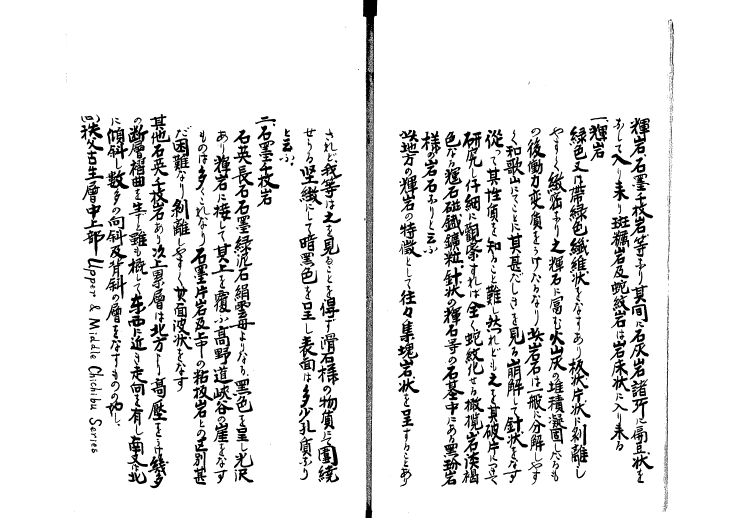 輝岩、石墨千枚岩等より其間に石灰岩諸所に扁豆状を
なして入り来り斑糲岩及蛇紋岩は岩床状に入り来る
一、輝岩
緑色又は帯緑色繊維状をなすあり板状片状に剥離し
やすく緻密なり之輝石に富む火山灰の堆積凝固したるも
の後働力変質をうけたるなり此岩石は一般に分解しやす
く和歌山にてことに其甚だしきを見る崩解して針状をなす
従って其性質を知ること難し然れども之を其破片につきて
研究し仔細に観察すれば全く蛇紋化せる橄欖岩淡褐
色なる輝石磁鐵鑛粒針状の輝石等の石基中にある黒玢岩
様の岩石なりと云ふ
此地方の輝岩の特徴として往々集塊岩状を呈することあり
されど我等は之を見ることを得ず滑石様の物質にて圍繞
せらる堅緻にして暗黒色を呈し表面は多少孔質なり
と云ふ。
二、石墨千枚岩
石英長石石墨緑泥石絹雲母よりなる、黒色を呈し光沢
あり輝岩に接して其上を覆ふ、高野道峡谷の崖をなす
ものは多くこれなり石墨片岩及上部の粘板岩との区別甚
だ困難なり剥離しやすく其面波状をなす
其他石英千枚岩あり次上累層は北方より高壓をうけ幾多
の断層褶曲を生ずと雖も概して东西に近き走向を有し南又は北
に傾斜し数多の向斜及背斜の層をなすものの如し、
秩父古生層中上部 Upper & Middle Chichibu Series